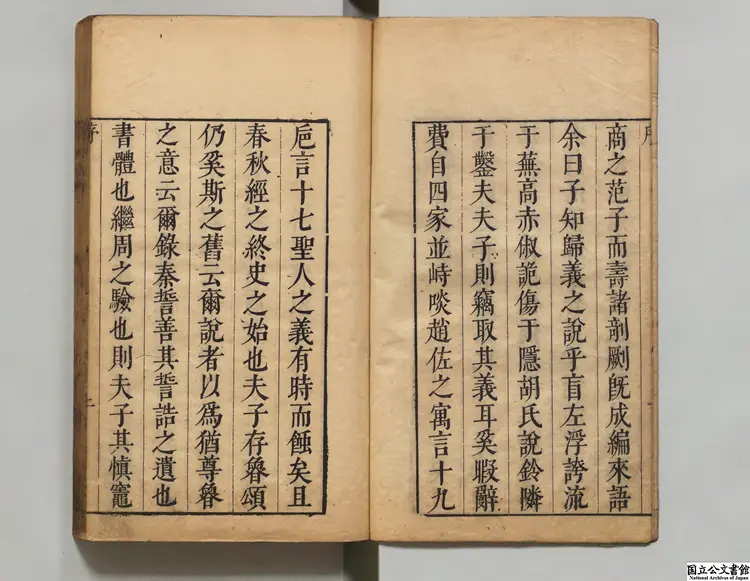 商之范子而壽諸剞劂旣成編來語
余曰子知歸義之說乎盲左浮誇流
于蕪高赤俶詭傷于隱胡氏說鈴隣
于鑿夫夫子則竊取其義耳奚暇辭
費自四家並峙啖趙佐之寓言十九
巵言十七聖人之義有時而蝕矣且
春秋經之終史之始也夫子存魯頌
仍奚斯之舊云爾說者以爲猶尊魯
之意云爾錄秦誓善其誓誥之遺也
書體也繼周之驗也則夫子其愼竈
国立公文書館
National Archives of Japan